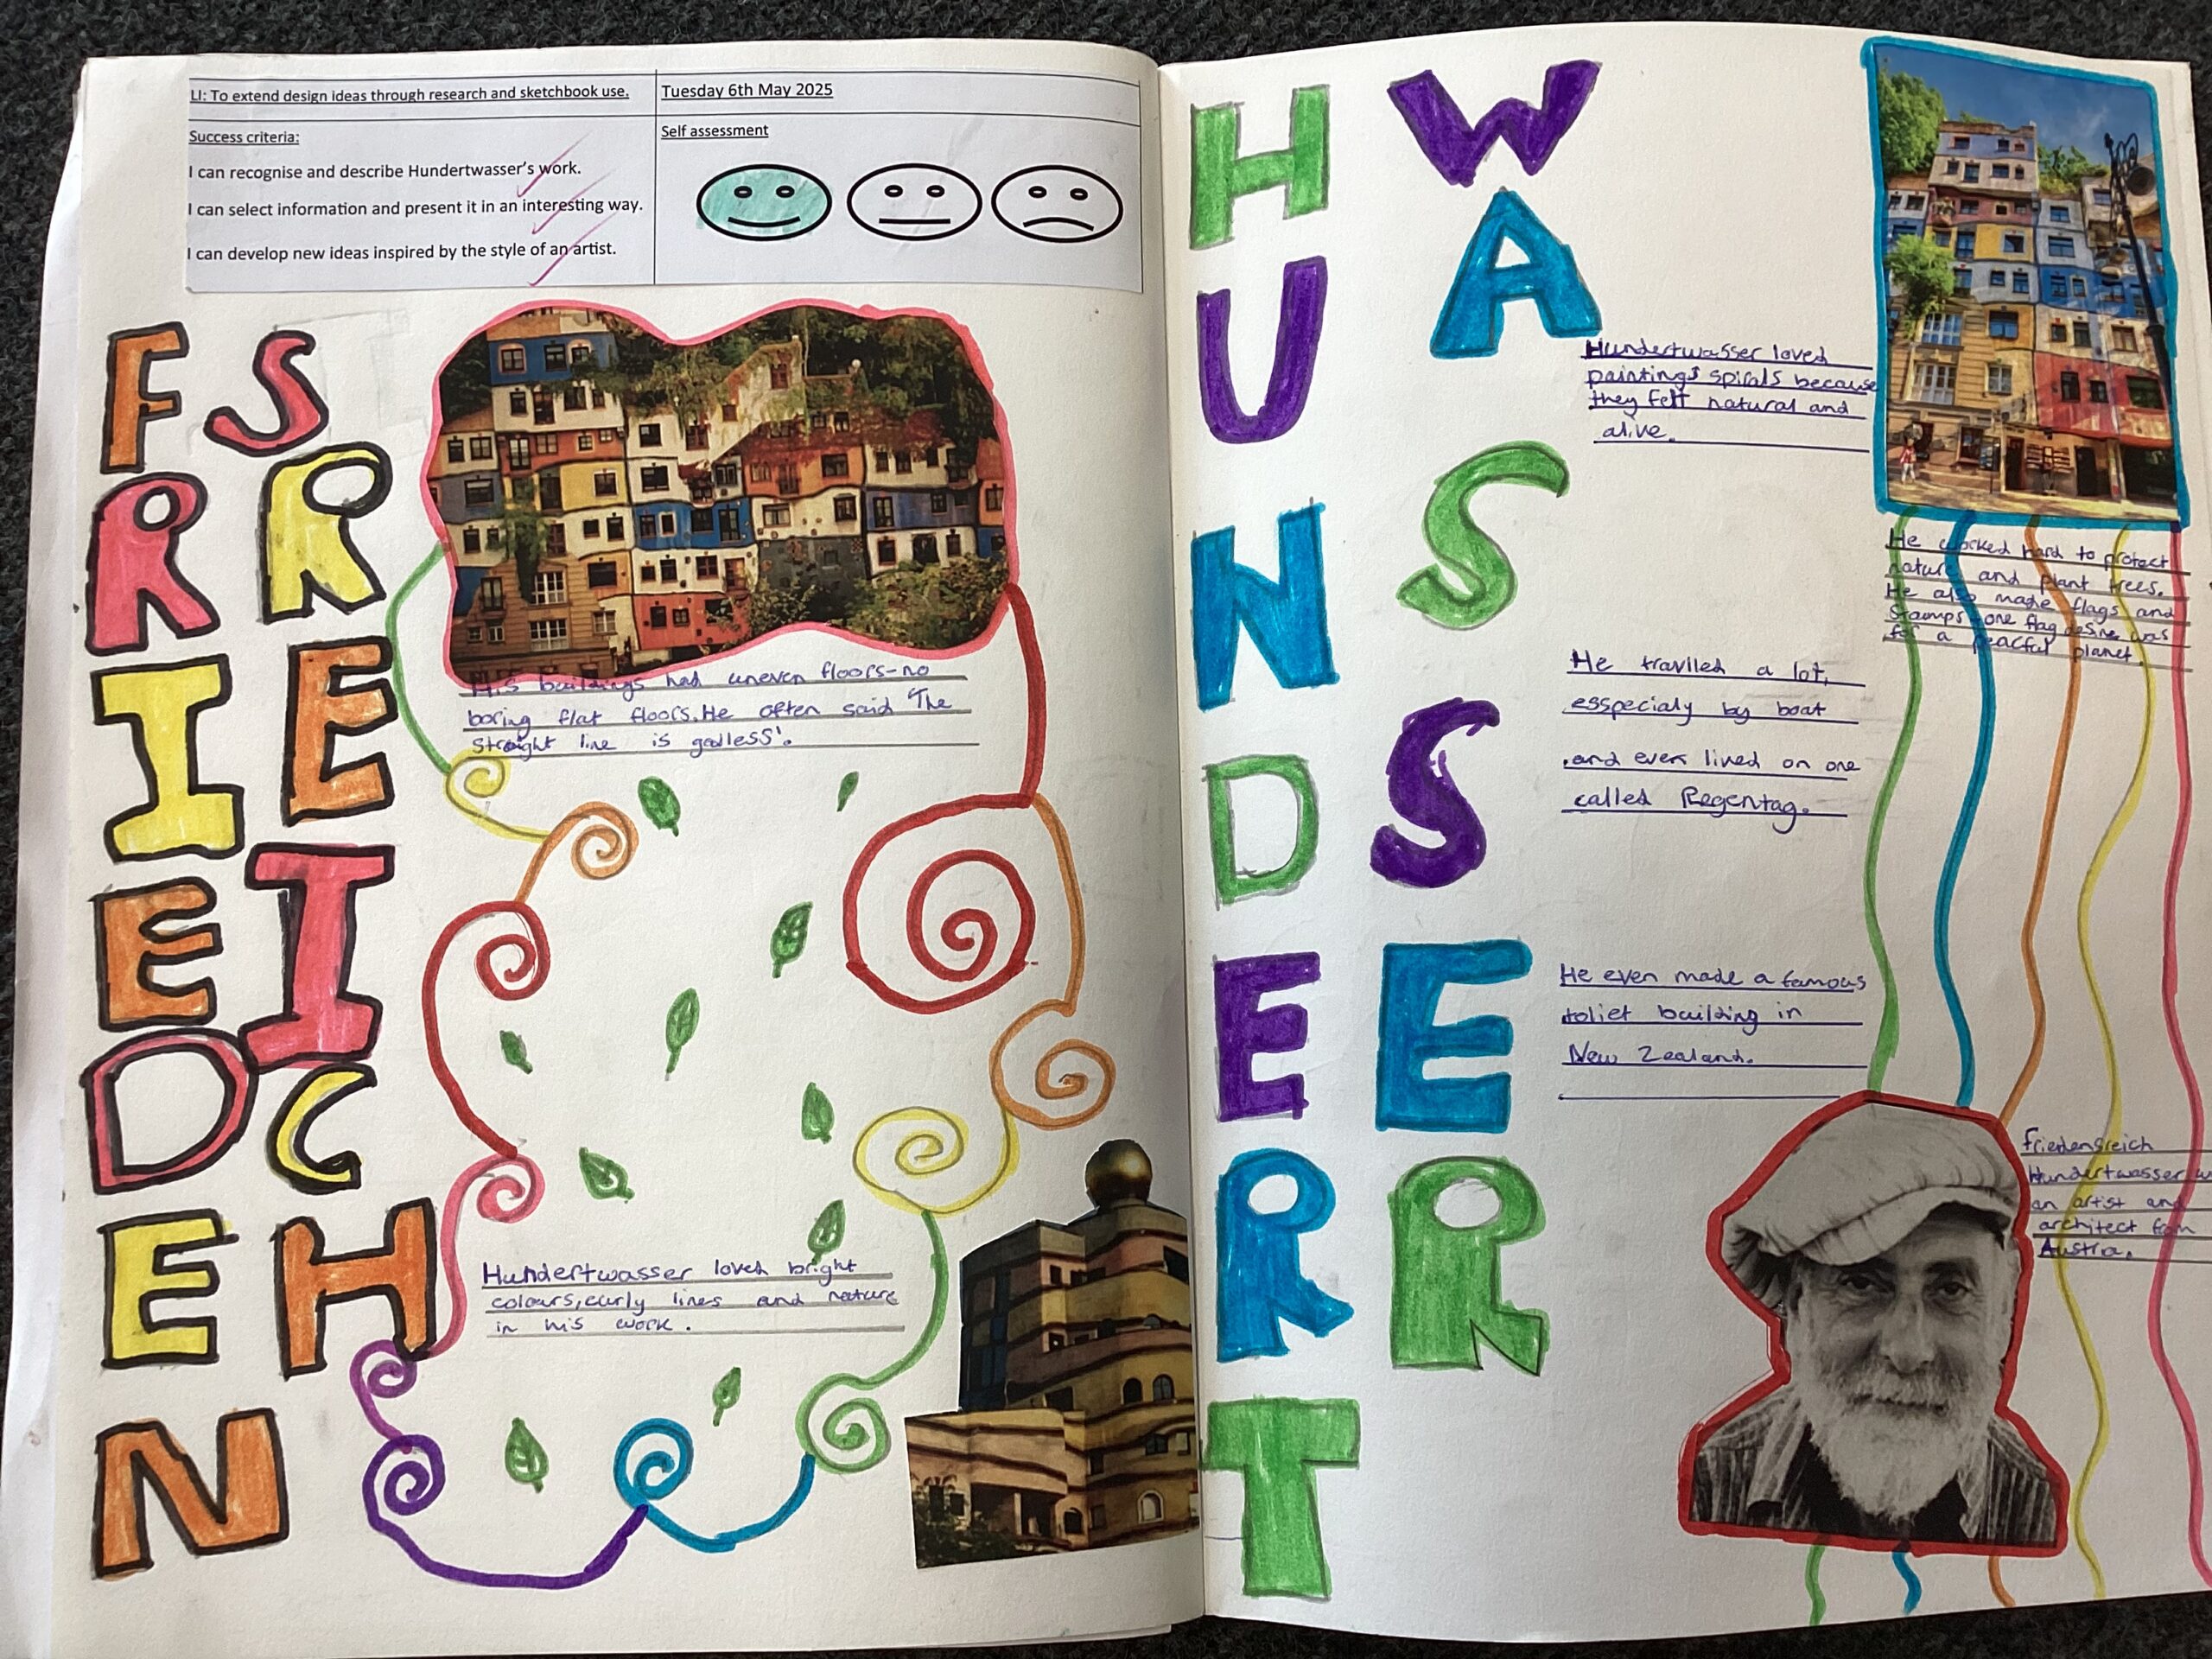 LI: To extend design ideas through research and sketchbook use.
Tuesday 6th May 2025
Success criteria:
I can recognise and describe Hundertwasser's work.
I can select information and present it in an interesting way.
I can develop new ideas inspired by the style of an artist.
Self assessment
FRIEDEN
SREICH
His buildings had uneven floors-no
boring flat floors. He often said 'The
straight line is godless'.
Hundertwasser loved bright
colours, curly lines and nature
in his work.
HUNDERT
WASSER
Hundertwasser loved
paintings spirals because
they felt natural and
alive.
He worked hard to protect
nature and plant trees.
He also made flags and
Stamps-one flag desine was
for a peacful planet.
He travlled a lot,
esspecialy by boat
and even lived on one
called Regentag.
He even made a famous
toliet building in
New Zealand.
friedensreich
Hundertwasser w
an artist and
architect from
Austria.